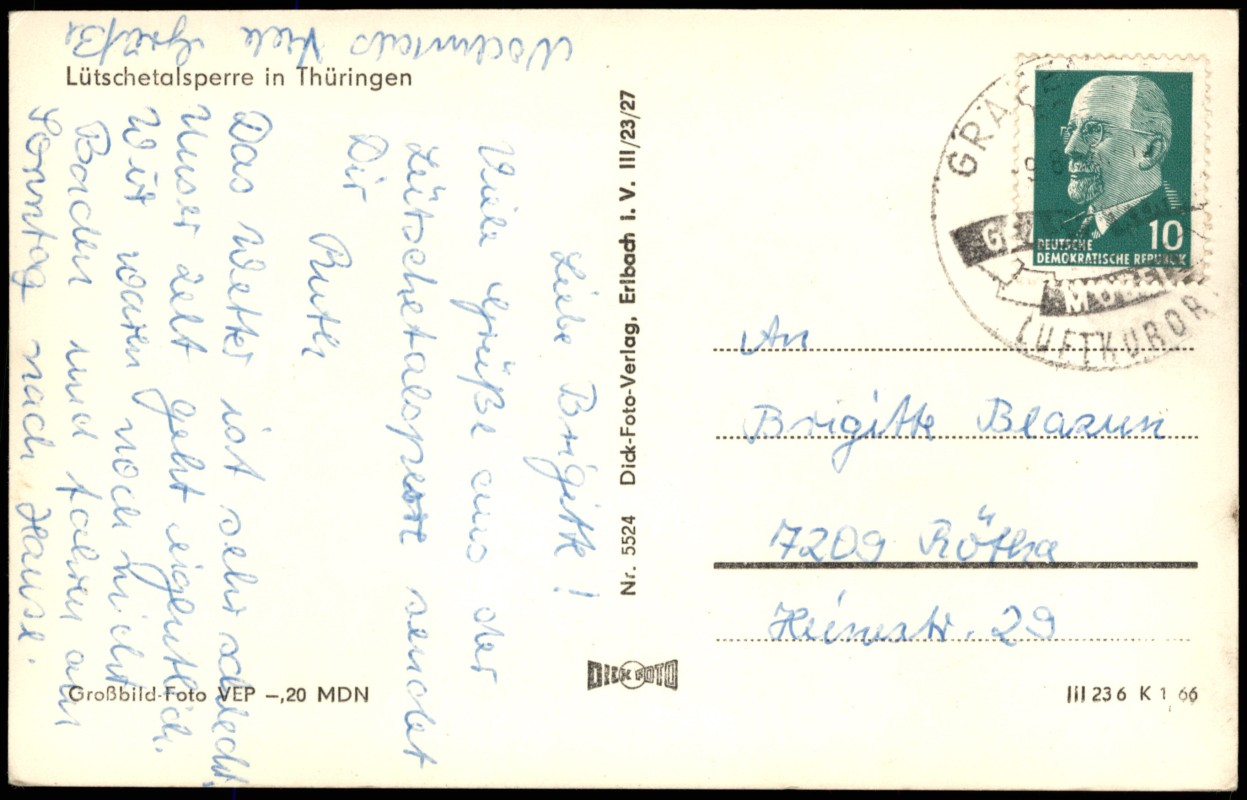 Lütschetalsperre in Thüringen
Liebe Brigitte!
Viele Grüße aus der
Lütschetalsperre sendet
Dir
Ruth
Das Wetter ist sehr schlecht,
Unser Zelt geht eigentlich.
Wir waren noch nicht
Baden und fahren am
Sonntag nach Hause.
Nochmals Viele Grüße
Großbild-Foto VEP –,20 MDN
Nr. 5524 Dick-Foto-Verlag, Erlbach i. V. III/23/27
DICK FOTO
DEUTSCHE
DEMOKRATISCHE REPUBLIK
10
LUFTKURORT
An
Brigitte Blazun
7209 Rötha
Heinestr. 29
III 23 6 K 1 66